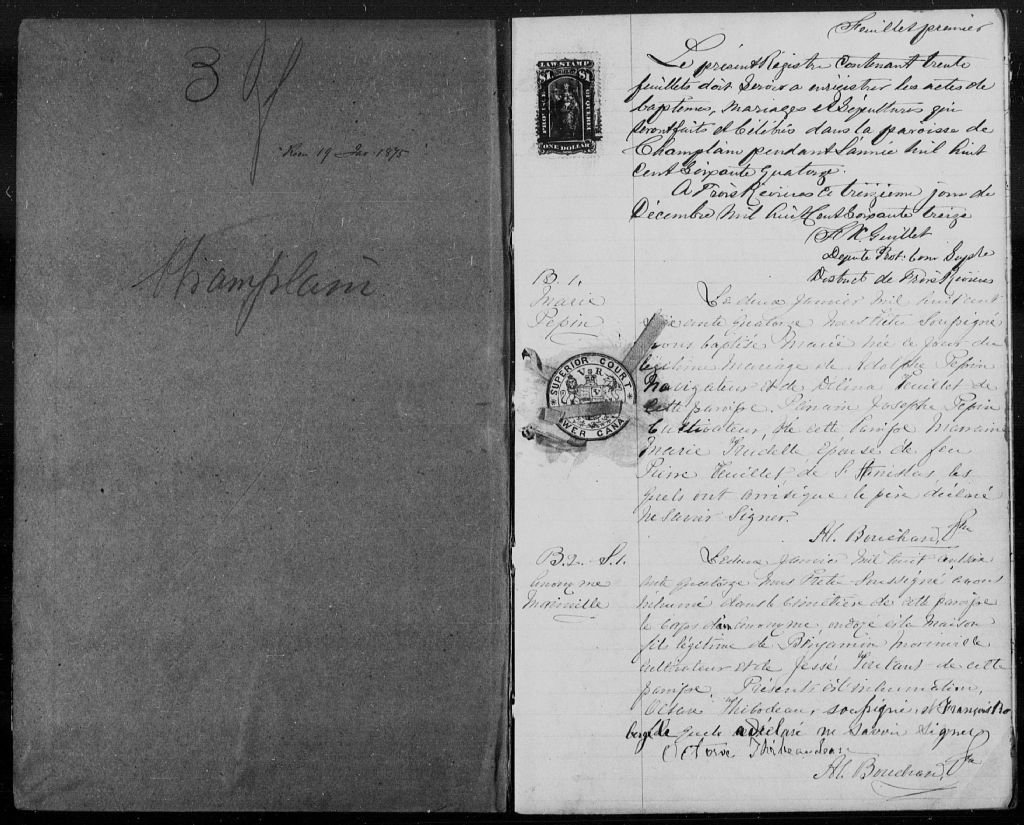 3
Rec. 19 Jan 1875
Champlain
Feuillet premier
LAW STAMP
$1 $1
ONE DOLLAR
Le présent Régistre Contenant trente
feuillets doit Servir a enrégistrer les actes de
baptêmes, Mariages et Sépultures qui
seront faits et Célébrés dans la paroisse de
Champlain pendant l'année Mil huit
cent Soixante quatorze.
A Trois Rivières ce treizième jour de
Décembre Mil huit Cent Soixante treize
Guillet
Depute Prot.
District de Trois Rivières
B. 1.
Marie
Pepin
Le deux Janvier Mil huit cent
soixante quatorze Nous Prêtre Soussigné
avons baptisé Marie née ce jour du
légitime Mariage de Adolphe Pepin
Navigateur et de Délina Veuillet de
cette paroisse, Parrain Joseph Pepin
Cultivateur, de cette paroisse Marraine
Marie Trudelle épouse de feu
Veuillet de St Stanislas les
quels ont ainsi que le père déclaré
ne savoir Signer.
Bouchard, Ptre
SUPERIOR COURT
V R
LOWER CANA
B. 2. S. 1.
Anonyme
Morinville
Le deux Janvier Mil huit cent soix
ante quatorze Nous Prêtre Soussigné avons
inhumé dans le Cimetière de cette paroisse
le Corps d'un Anonyme ondoyé à la Maison
fils légitime de Benjamin Morinville
cultivateur et de Toutant de cette
paroisse. Présents à l'inhumation,
Octave Thibodeau, soussigné et François Ro
berge le quel a déclaré ne savoir signer
Octave Thibeaudeau
Bouchard, Ptre